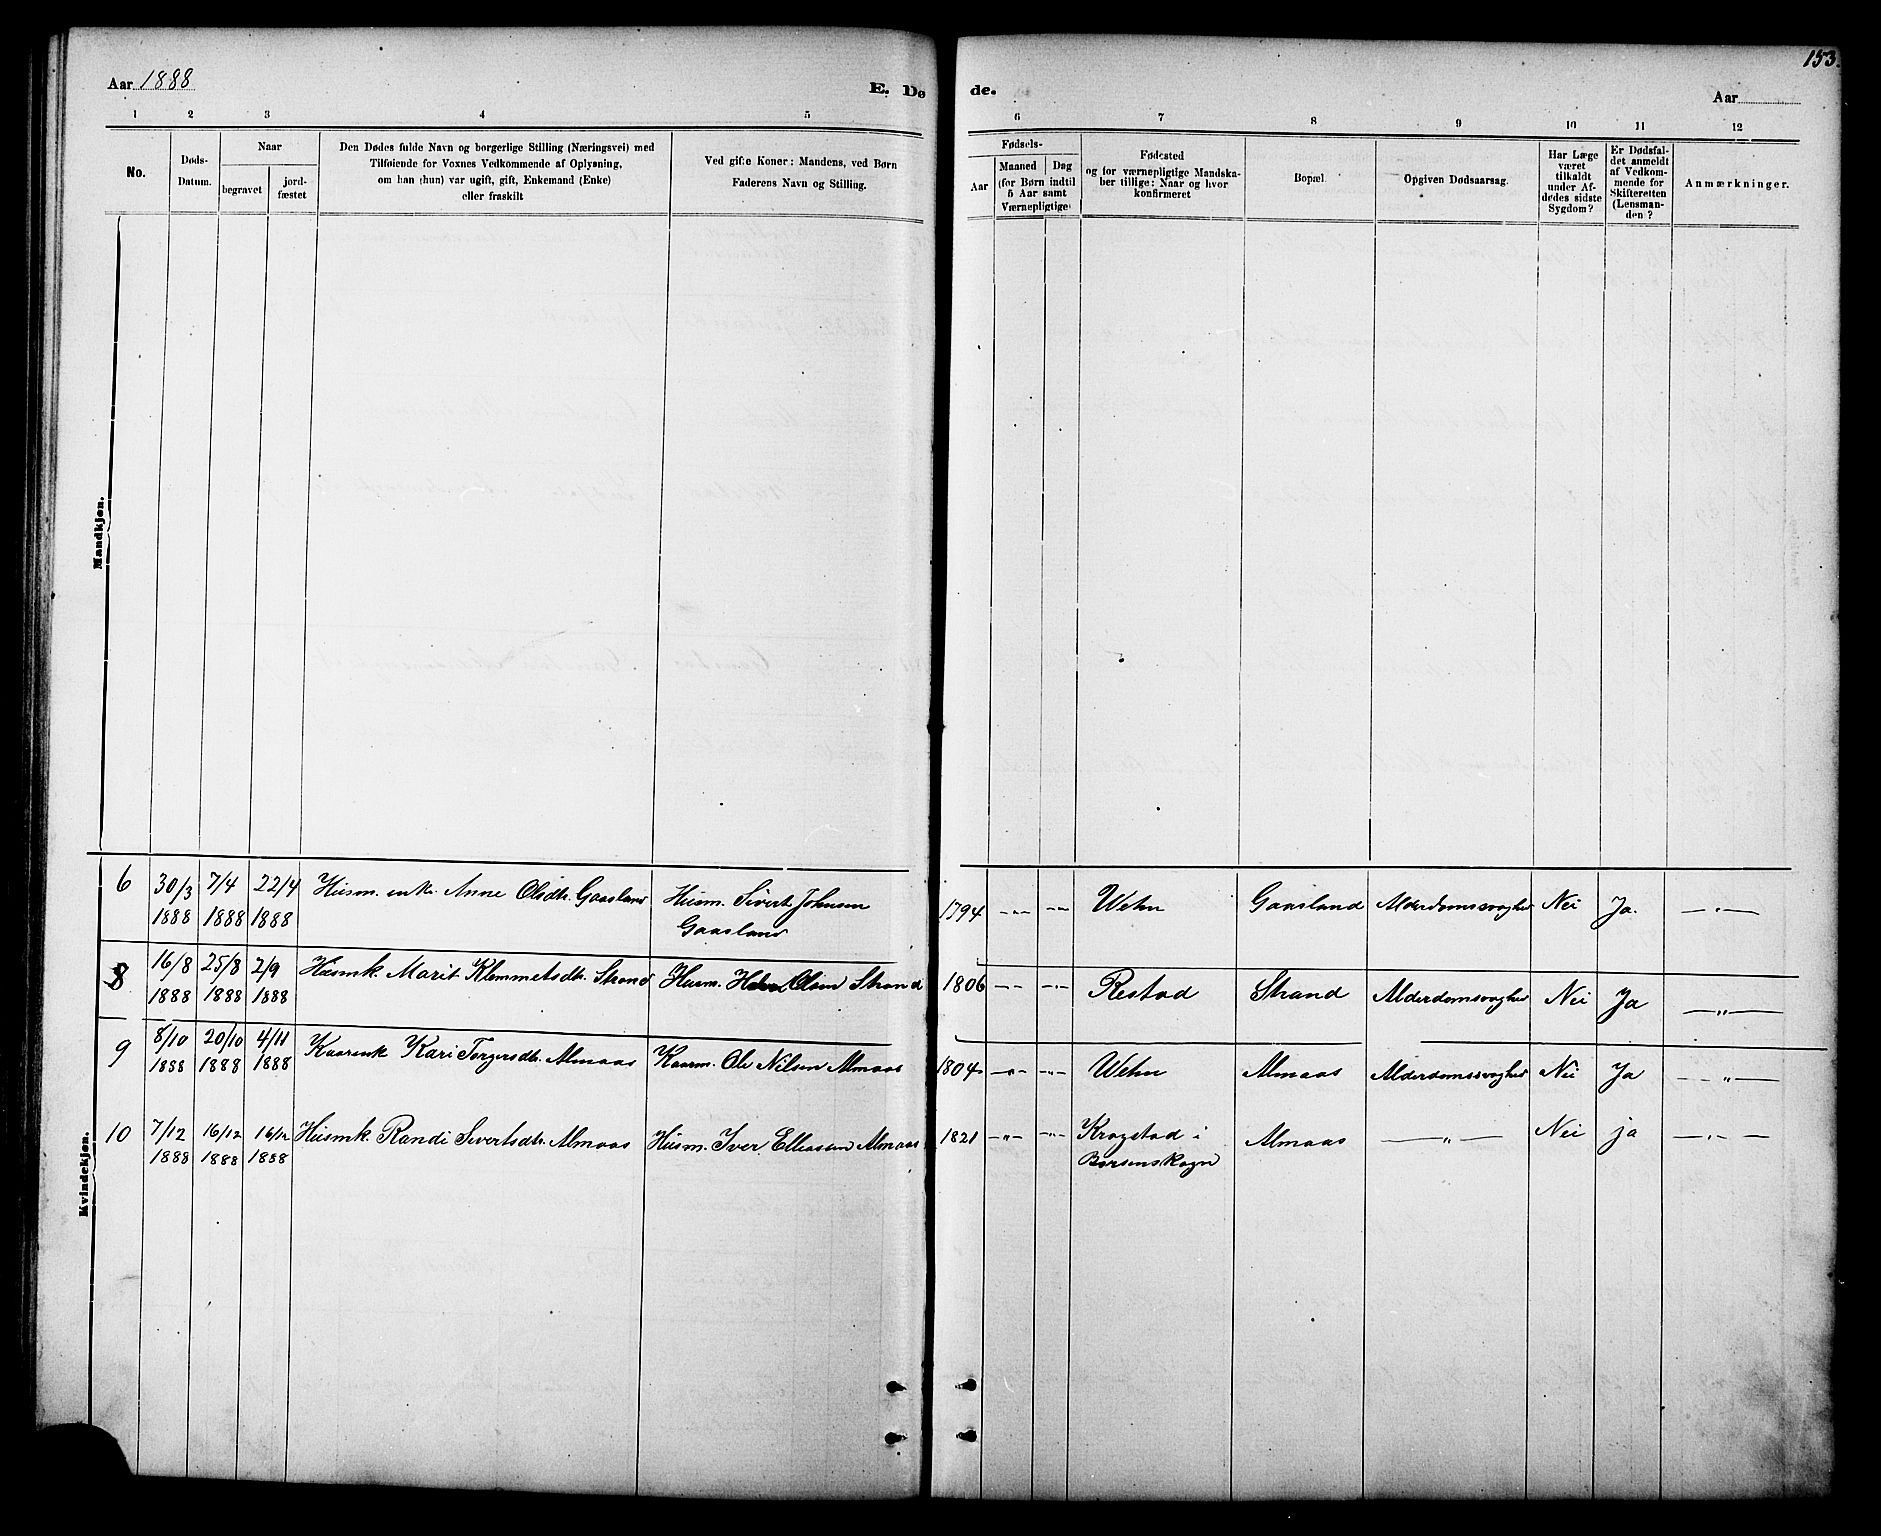 153.
Aar 1888
E. Dø
de.
Aar
1 2 3 4 5
6 7 8 9 10 11 12
No.
Døds-
Datum.
Naar
begravet
jord-
fæstet
Den Dødes fulde Navn og borgerlige Stilling (Næringsvei) med
Tilføiende for Voxnes Vedkommende af Oplysning,
om han (hun) var ugift, gift, Enkemand (Enke)
eller fraskilt
Ved gifte Koner: Mandens, ved Børn
Faderens Navn og Stilling.
Fødsels-
Aar
Maaned
Dag
(for Børn indtil
5 Aar samt
Værnepligtige)
Fødested
og for værnepligtige Mandska-
ber tillige: Naar og hvor
konfirmeret
Bopæl.
Opgiven Dødsaarsag.
Har Læge
været
tilkaldt
under Af-
dødes sidste
Sygdom?
Er Dødsfal-
det anmeldt
af Vedkom-
mende for
Skifteretten
(Lensman-
den?
Anmærkninger.
Mandkjøn.
Kvindekjøn.
6 30/3 7/4 22/4 Husm. enke Anne Olsdtr. Gaasland Husm. Sivert Johnsen 1794 -„- -„- Wehn Gaasland Alderdomssvaghed Nei Ja. -„-
1888 1888 1888 Gaasland
8 16/8 25/8 2/9 Husmk. Marit Klemmetsdtr. Strand Husm. Olsen Strand 1806 -„- -„- Restad Strand Alderdomssvaghed Nei Ja -„-
1888 1888 1888
9 8/10 20/10 4/11 Kaarenk Kari Torgersdtr. Almaas Kaarm. Ole Nilsen Almaas 1804 -„- -„- Wehn Almaas Alderdomssvaghed Nei Ja -„-
1888 1888 1888
10 7/12 16/12 16/12 Husmk. Randi Sivertsdtr. Almaas Husm. Iver Elleassen Almaas 1821 -„- -„- Krogstad i Almaas -„- Nei ja -„-
1888 1888 1888 Børsenskogn